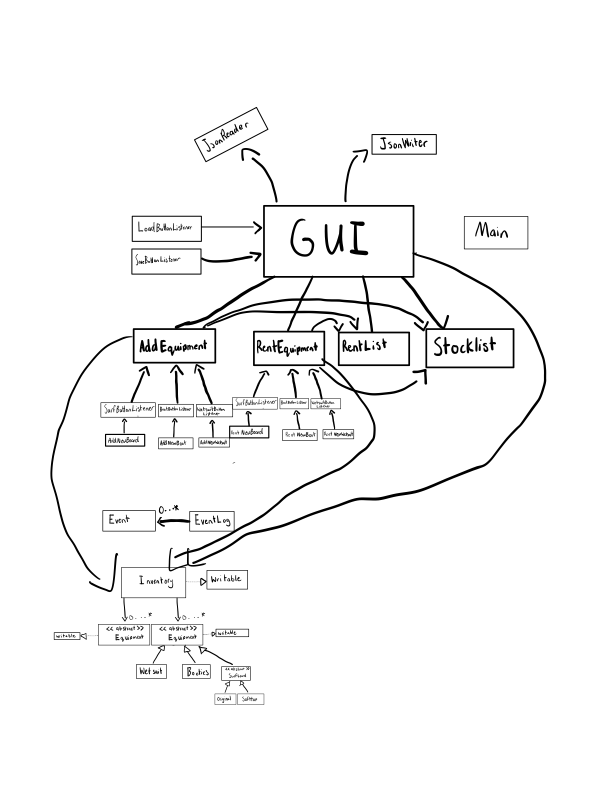 JsonReader
JsonWriter
LoadButtonListener
GUI
Main
SaveButtonListener
AddEquipment
RentEquipment
RentList
Stocklist
SurfButtonListener
BootButtonListener
WetsuitButton
Listener
SurfButtonListener
BootButtonListener
WetsuitButton
Listener
AddNewBoard
AddNewBoot
AddNewWetsuit
Rent NewBoard
Rent NewBoot
Rent NewWetsuit
Event
0...*
EventLog
Inventory
Writable
0...*
0...*
Writable
<< abstract >>
Equipment
<< abstract >>
Equipment
Writable
Wetsuit
Booties
<< abstract >>
Surfboard
Original
Softtop